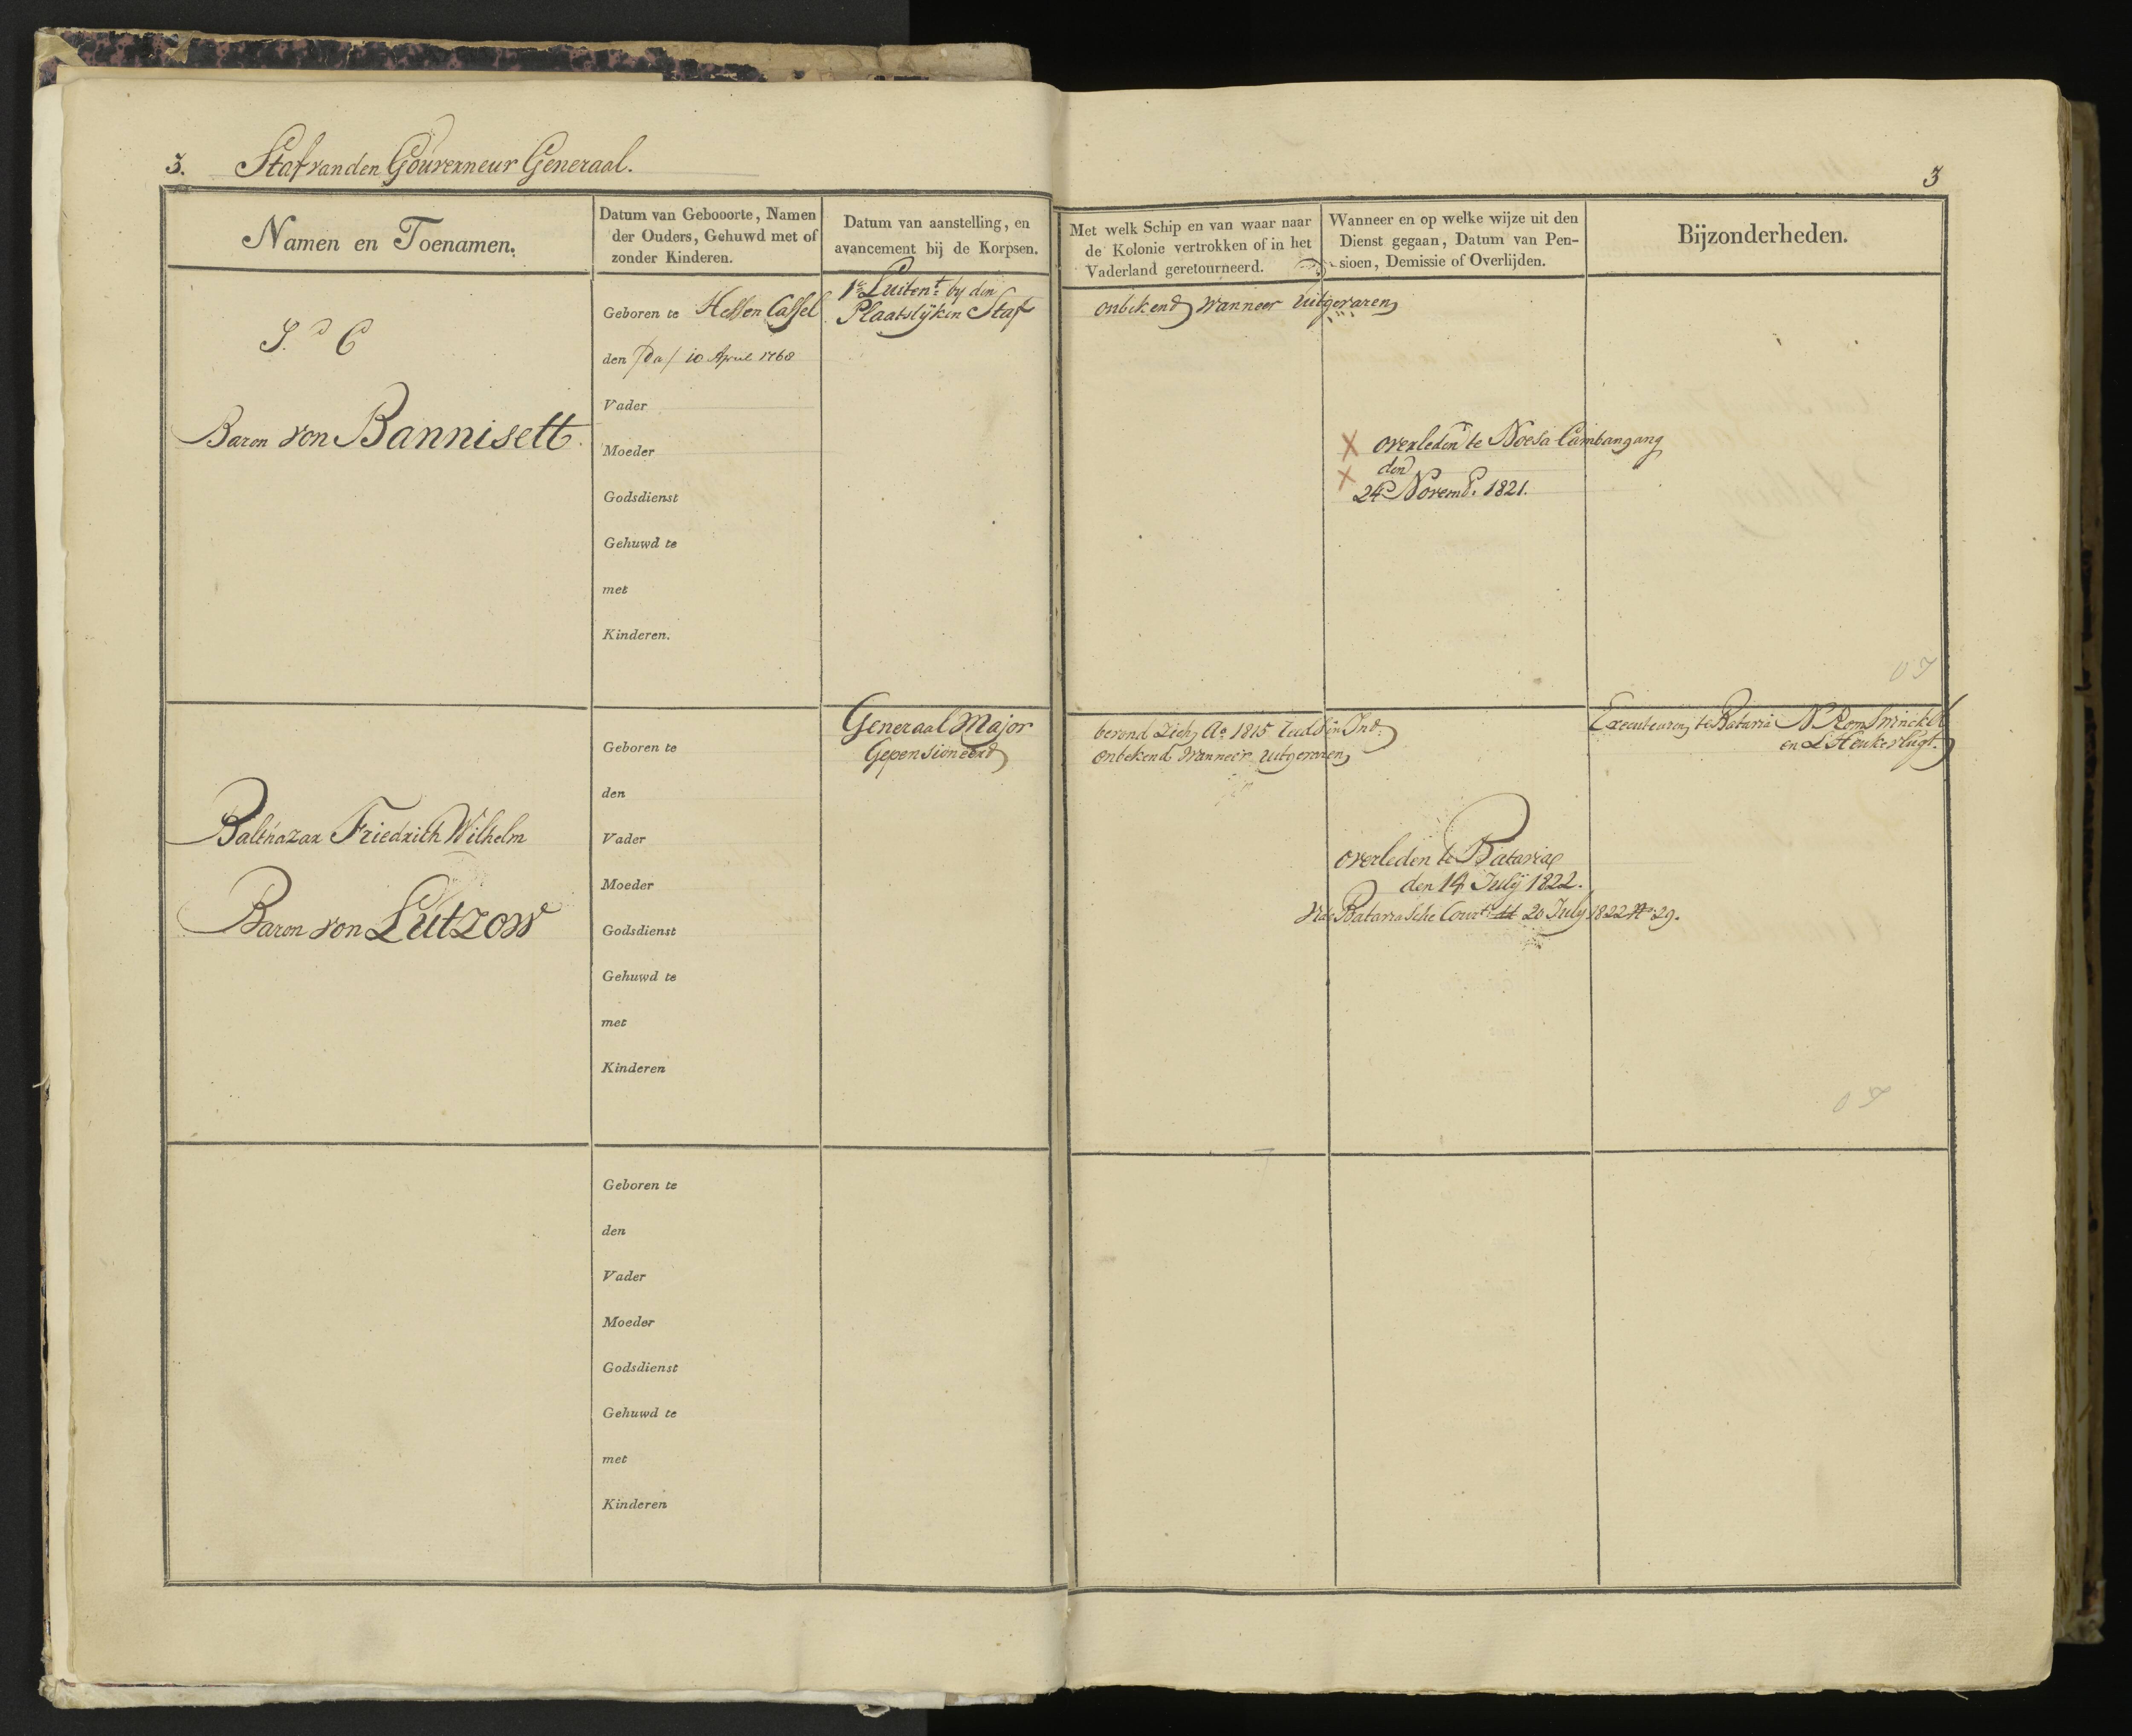 3. Staf van den Gouverneur Generaal.
3
Namen en Toenamen.
Datum van Gebooorte, Namen
der Ouders, Gehuwd met of
zonder Kinderen.
Datum van aanstelling, en
avancement bij de Korpsen.
Met welk Schip en van waar naar
de Kolonie vertrokken of in het
Vaderland geretourneerd.
Wanneer en op welke wijze uit den
Dienst gegaan, Datum van Pen-
sioen, Demissie of Overlijden.
Bijzonderheden.
Baron von Bannisett.
Geboren te Hessen Cassel
den 10 April 1768
Vader
Moeder
Godsdienst
Gehuwd te
met
Kinderen.
1e Luitent by den
Plaatslijken Staf
onbekend wanneer uitgevaren
overleden te Noesa Cambangang
den
24 Novemb. 1821.
Balthazar Friedrich Wilhelm
Baron von Lutzow
Geboren te
den
Vader
Moeder
Godsdienst
Gehuwd te
met
Kinderen
Generaal Major
Gepensioneerd
bevond zich Ao 1815 reeds in Ind.
onbekend wanneer uitgevaren
overleden te Batavia
den 14 Julij 1822.
vide Bataviasche Court dd 20 July 1822 No 29.
Executeuren te Batavia
Geboren te
den
Vader
Moeder
Godsdienst
Gehuwd te
met
Kinderen